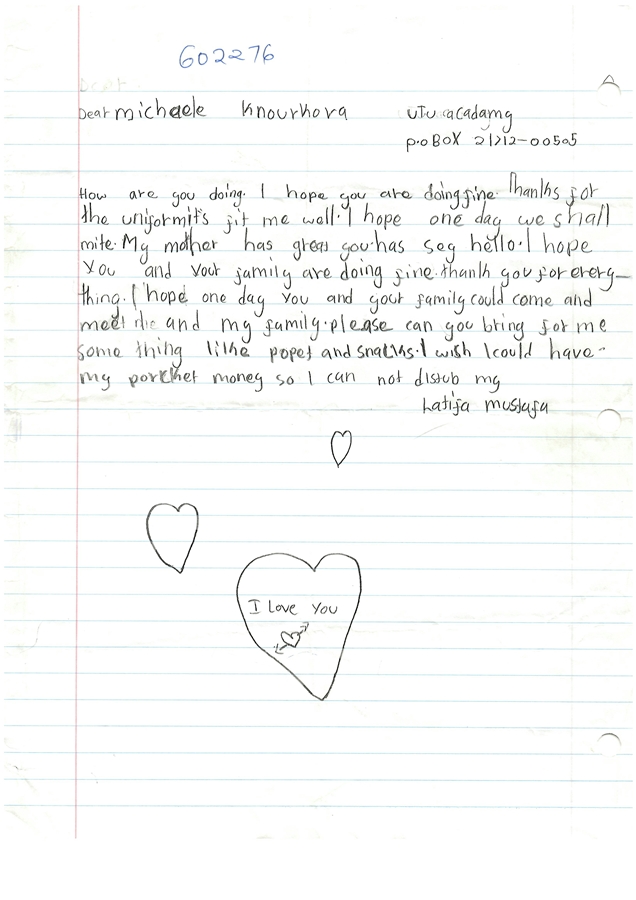 602276
Dear
Dear michaele Knourkova UTU acadamy
p.o BOX 21212-00505
How are you doing. I hope you are doing fine. Thanks for
the uniformits fit me well. I hope one day we shall
mite. My mother has greas you. has sey hello. I hope
You and your family are doing fine. thank you for every-
thing. I hope one day you and your family could come and
meet me and my family. please can you bring for me
some thing like popet and snacks. I wish I could have
my porket money so I can not distub my
Latifa mustafa
I Love You